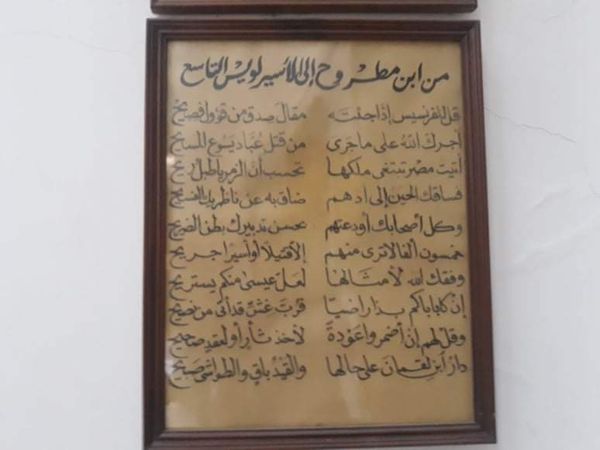 من ابن مطروح إلى الأسير لويس التاسع
قل للفرنسيس إذا جئته مقال صدق من قؤول فصيح
آجرك الله على ما جرى من قتل عباد يسوع المسيح
أتيت مصر تبتغى ملكها تحسب أن الزمر يا طبل ريح
فساقك الحين إلى أدهم ضاق به عن ناظريك الفسيح
وكل أصحابك أودعتهم بحسن تدبيرك بطن الضريح
خمسون ألفا لا ترى منهم إلا قتيلا أو أسيرا جريح
وفقك الله لأمثالها لعل عيسى منكم يستريح
إن كان باباكم بذا راضيا فرب غش قد أتى من نصيح
وقل لهم إن أضمروا عودة لأخذ ثأر أو لعقد صحيح
دار ابن لقمان على حالها والقيد باقي والطواشى صبيح